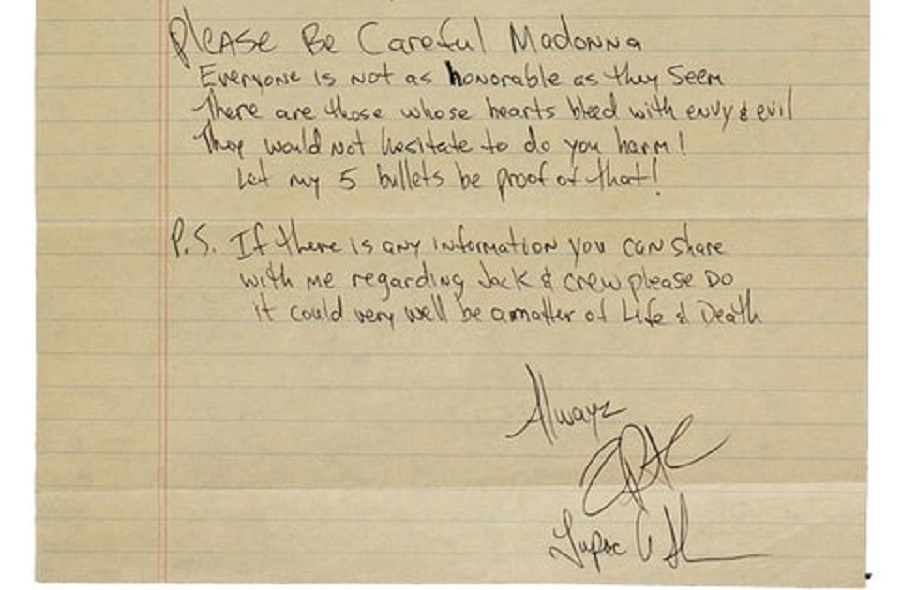 PLEASE Be Careful Madonna
Everyone is not as honorable as they seem
There are those whose hearts bleed with envy & evil
They would not hesitate to do you harm!
Let my 5 bullets be proof of that!
P.S. If there is any information you can share
with me regarding Jack & crew please Do
it could very well be a matter of Life & Death
Alwayz
Tupac